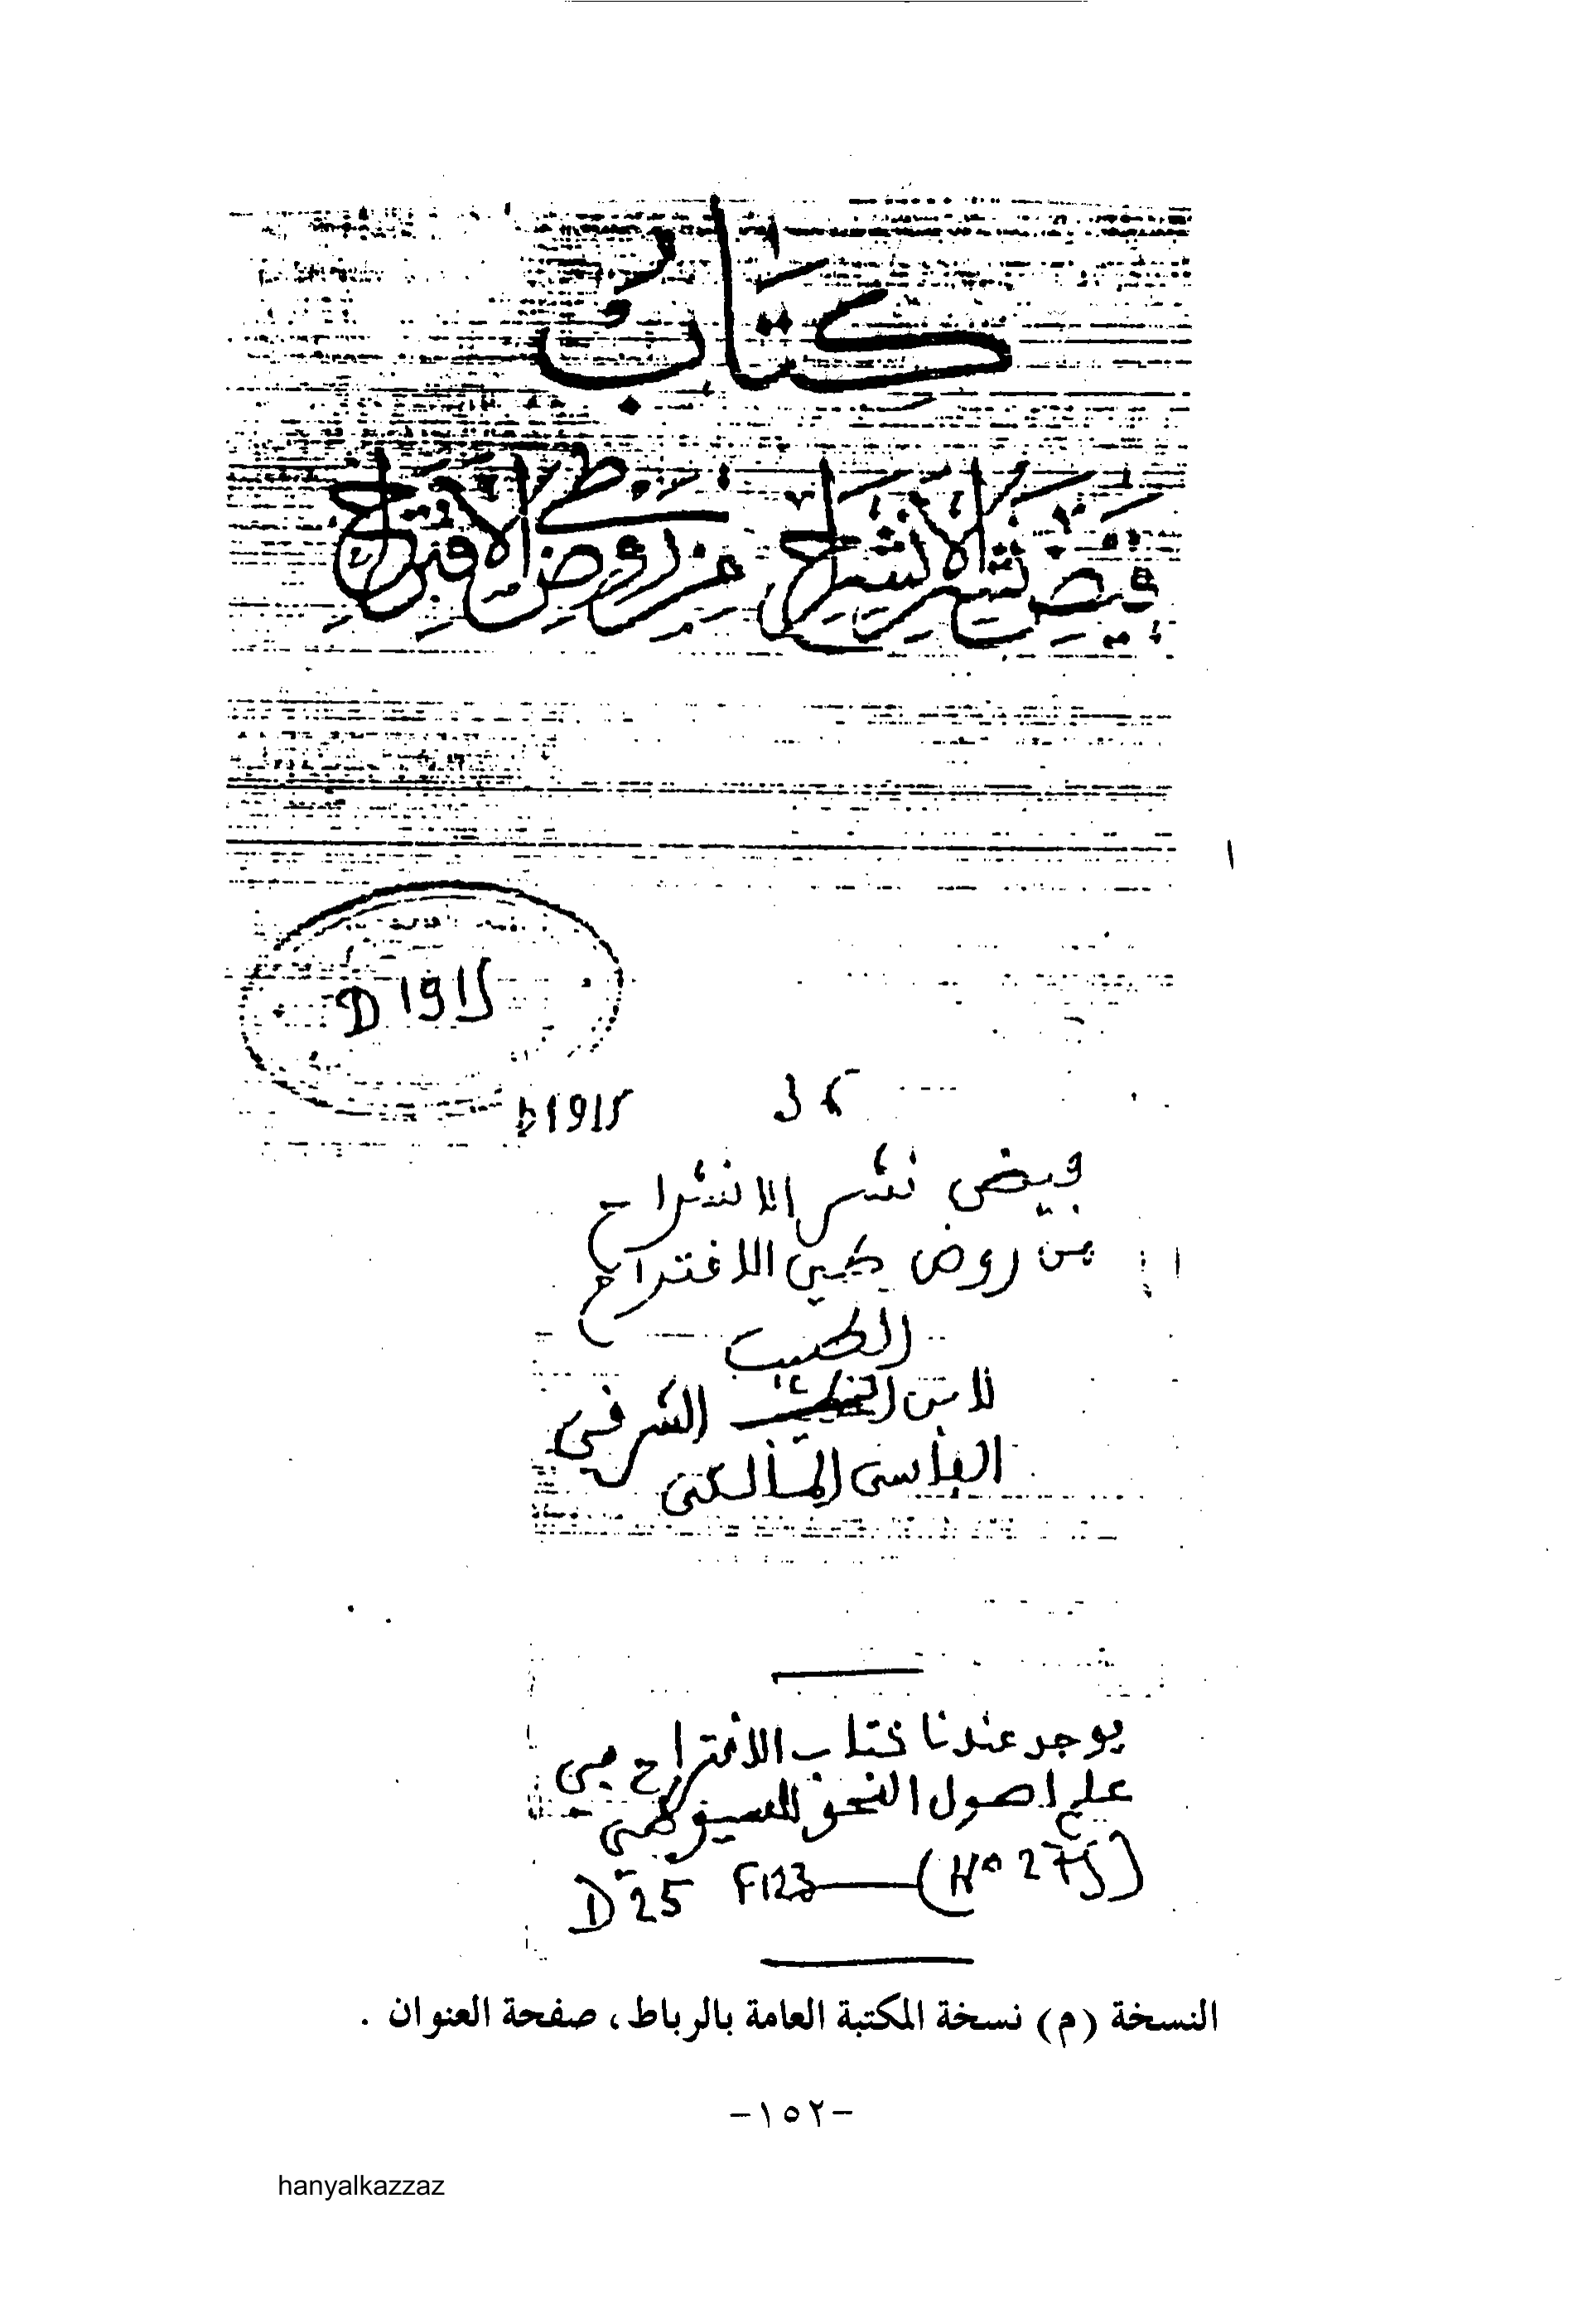 كتاب
فيض نشر الانشراح من روض طي الاقتراح
D 1915
D 1915
فيض نشر الانشراح
من روض طي الاقتراح
الطيب
لابن الشرفي
الفاسي المالكي
يوجد عندنا كتاب الاقتراح في
علم اصول النحو للسيوطي
D 25 F123—(N° 275)
النسخة (م) نسخة المكتبة العامة بالرباط، صفحة العنوان .
-١٥٢-
hanyalkazzaz